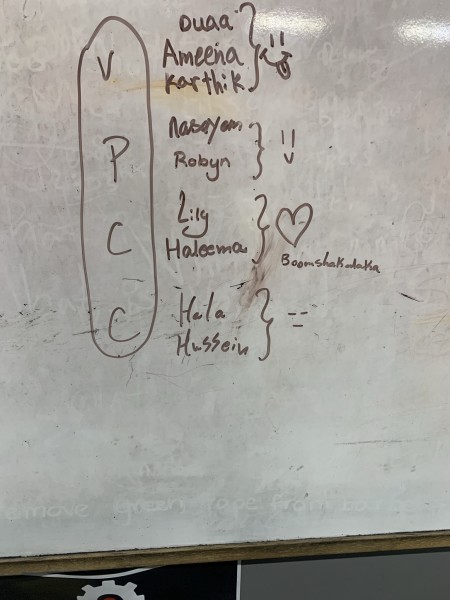 V
Duaa
Ameena
Karthik
P
Robyn
C
Lily
Haleema
Boomshakalaka
C
Hala
Hussein